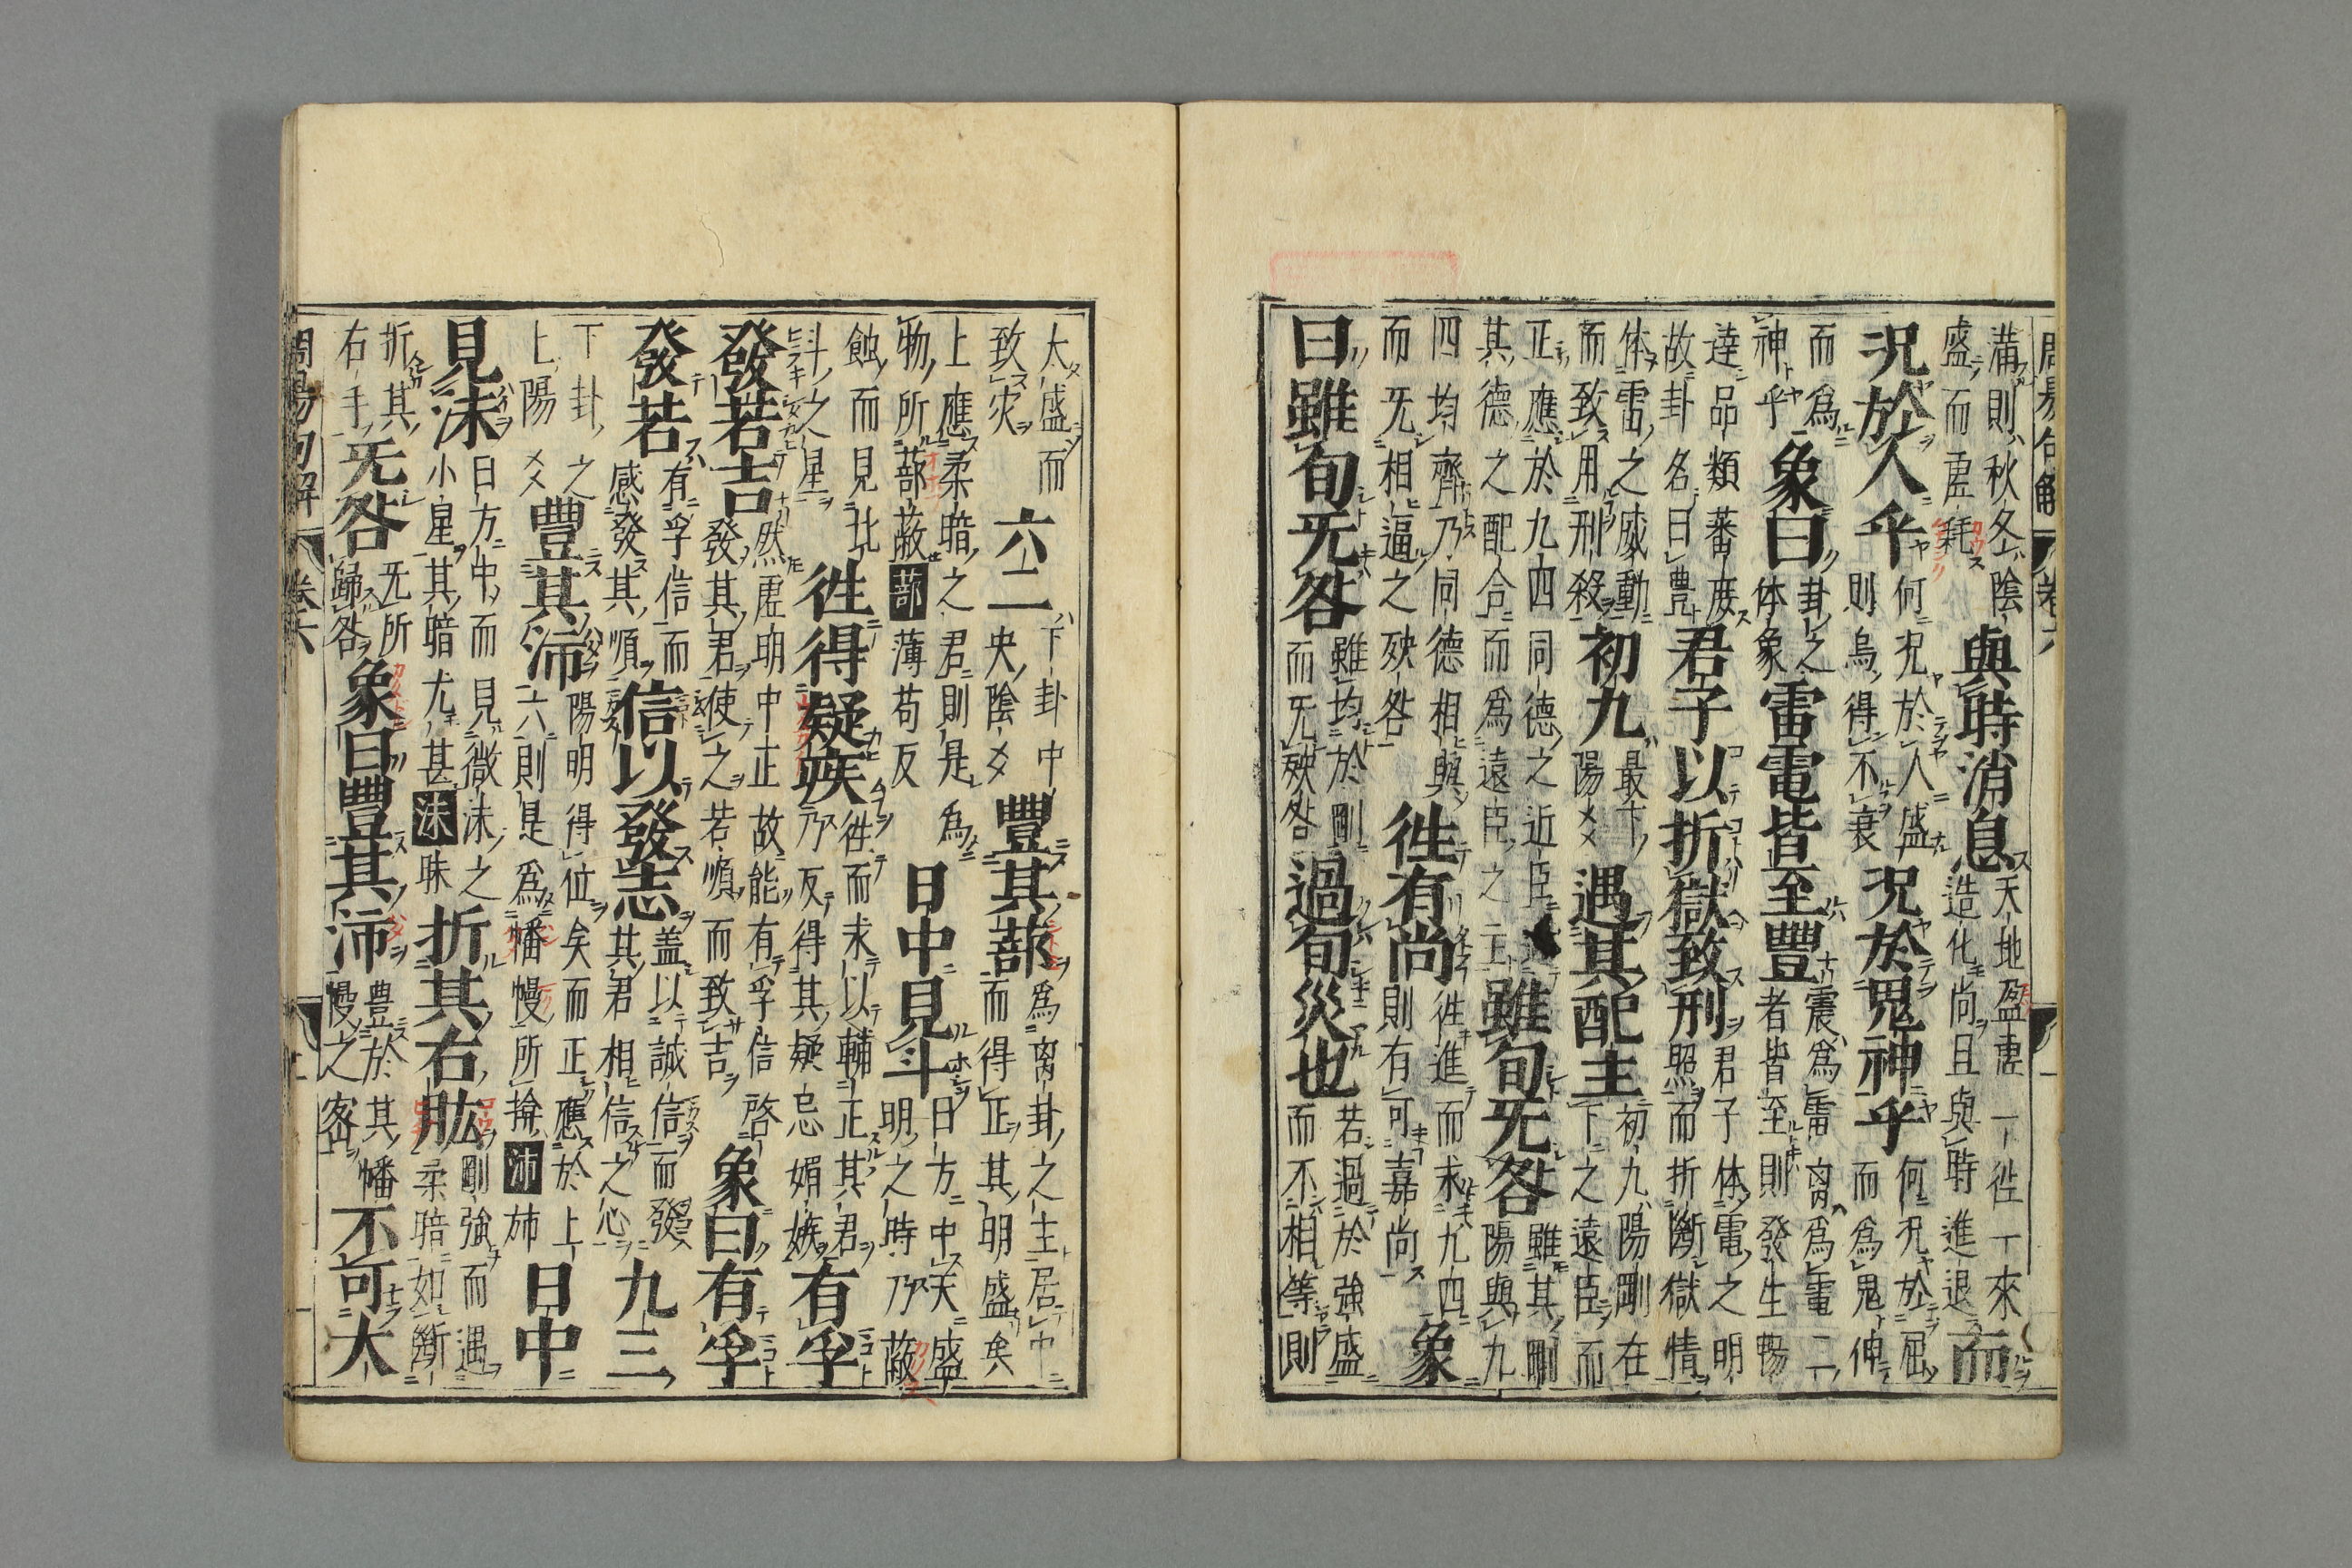 周易句解 卷六
滿則秋冬陰
盛而虛耗
與時消息
天地盈虛一往一來
造化尚且與時進退
而
況於人乎
何況於人盛
則烏得不衰
況於鬼神乎
何況於屈
而為鬼伸
而為
神乎
象曰
卦之
体象
雷電皆至豐
震為雷离為電二
者皆至則發生暢
達品類蕃庶
故卦名曰豐
君子以折獄致刑
君子体電之明
照而折斷獄情
体雷之威動
而致用刑殺
初九
最下
陽爻
遇其配主
初九陽剛在
下之遠臣而
正應於九四同德之近臣
其德之配合而為遠臣之主
雖旬无咎
雖其剛
陽與九
四均齊乃同德相與
而无相逼之殃咎
往有尚
往進而求九四
則有可嘉尚
象
曰雖旬无咎
雖均於剛
而无殃咎
過旬災也
若過於強盛
而不相等則
太盛而
致灾
六二
下卦中
央陰爻
豐其蔀
為离卦之主居中
而得正其明盛矣
上應柔暗之君則是為
物所蔀蔽蔀薄苟反
日中見斗
日方中天盛
明之時乃蔽
蝕而見北
斗之星
往得疑疾
往而求以輔正其君
乃反得其疑忌媢嫉
有孚
發若吉
然虛明中正故能有孚信啓
發其君使之若順而致吉
象曰有孚
發若
有孚信而
感發其順
信以發志
盖以誠信而發
其君相信之心
九三
下卦之
上陽爻
豐其沛
陽明得位矣而正應於上
六則是為幡幔所揜沛㫊
日中
見沬
日方中而見微沬之
小星其暗尤甚沬昧
折其右肱
剛強而遇
柔暗如斷
折其
右手
无咎
无所
歸咎
象曰豐其沛
豊於其幡
幔之密
不可大
周易句解 卷六